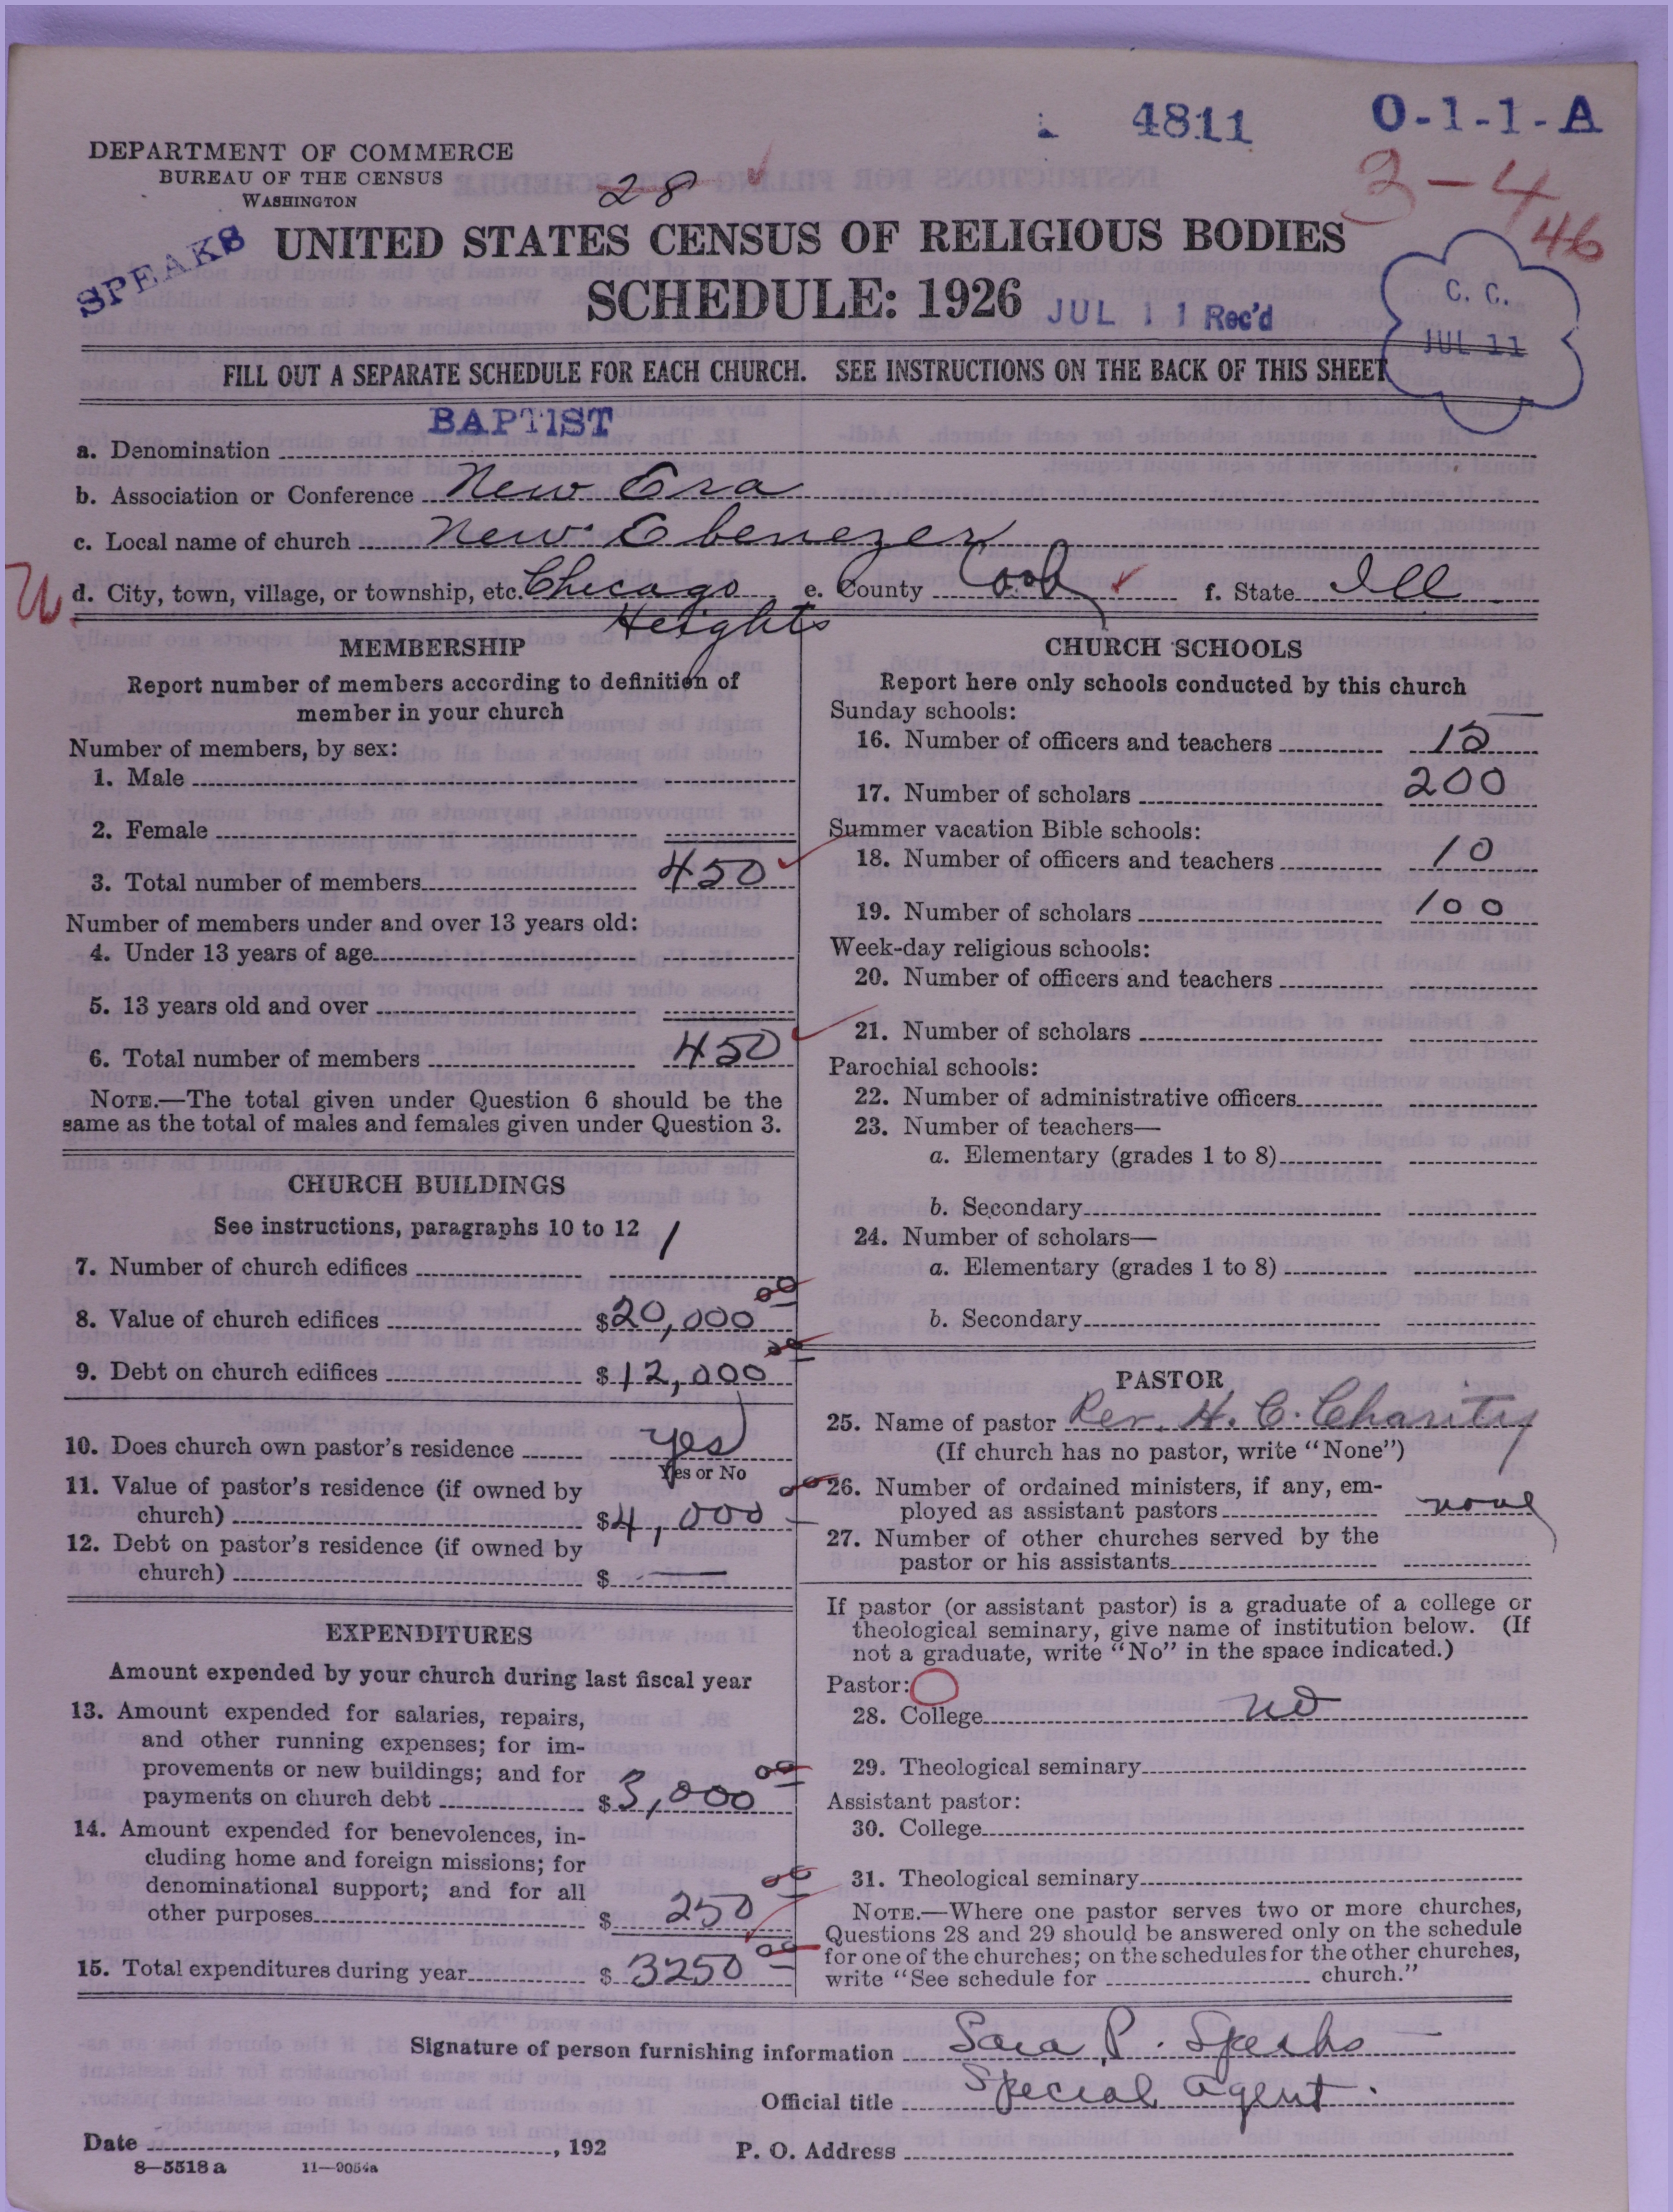 4811 O-1-1-A
3-4
46
DEPARTMENT OF COMMERCE
BUREAU OF THE CENSUS
WASHINGTON
28
SPEAKS
UNITED STATES CENSUS OF RELIGIOUS BODIES
SCHEDULE: 1926
JUL 11 Rec'd
C. C.
JUL 11
FILL OUT A SEPARATE SCHEDULE FOR EACH CHURCH. SEE INSTRUCTIONS ON THE BACK OF THIS SHEET
a. Denomination BAPTIST
b. Association or Conference New Era
c. Local name of church New Ebenezer
d. City, town, village, or township, etc. Chicago Heights e. County Cook f. State Ill
MEMBERSHIP
Report number of members according to definition of
member in your church
Number of members, by sex:
1. Male
2. Female
3. Total number of members 450
Number of members under and over 13 years old:
4. Under 13 years of age
5. 13 years old and over
6. Total number of members 450
NOTE.—The total given under Question 6 should be the
same as the total of males and females given under Question 3.
CHURCH BUILDINGS
See instructions, paragraphs 10 to 12
7. Number of church edifices 1
8. Value of church edifices $20,000 00
9. Debt on church edifices $12,000 00
10. Does church own pastor's residence yes
Yes or No
11. Value of pastor's residence (if owned by
church) $4,000 00
12. Debt on pastor's residence (if owned by
church) $ —
EXPENDITURES
Amount expended by your church during last fiscal year
13. Amount expended for salaries, repairs,
and other running expenses; for im-
provements or new buildings; and for
payments on church debt $3,000 00
14. Amount expended for benevolences, in-
cluding home and foreign missions; for
denominational support; and for all
other purposes $ 250 00
15. Total expenditures during year $ 3250 00
CHURCH SCHOOLS
Report here only schools conducted by this church
Sunday schools:
16. Number of officers and teachers 15
17. Number of scholars 200
Summer vacation Bible schools:
18. Number of officers and teachers 10
19. Number of scholars 100
Week-day religious schools:
20. Number of officers and teachers
21. Number of scholars
Parochial schools:
22. Number of administrative officers
23. Number of teachers—
a. Elementary (grades 1 to 8)
b. Secondary
24. Number of scholars—
a. Elementary (grades 1 to 8)
b. Secondary
PASTOR
25. Name of pastor Rev. H. C. Charity
(If church has no pastor, write "None")
26. Number of ordained ministers, if any, em-
ployed as assistant pastors none
27. Number of other churches served by the
pastor or his assistants
If pastor (or assistant pastor) is a graduate of a college or
theological seminary, give name of institution below. (If
not a graduate, write "No" in the space indicated.)
Pastor:
28. College no
29. Theological seminary
Assistant pastor:
30. College
31. Theological seminary
NOTE.—Where one pastor serves two or more churches,
Questions 28 and 29 should be answered only on the schedule
for one of the churches; on the schedules for the other churches,
write "See schedule for church."
Signature of person furnishing information Sara P. Speaks
Official title Special Agent.
Date , 192 P. O. Address
8—5518 a 11—9054a